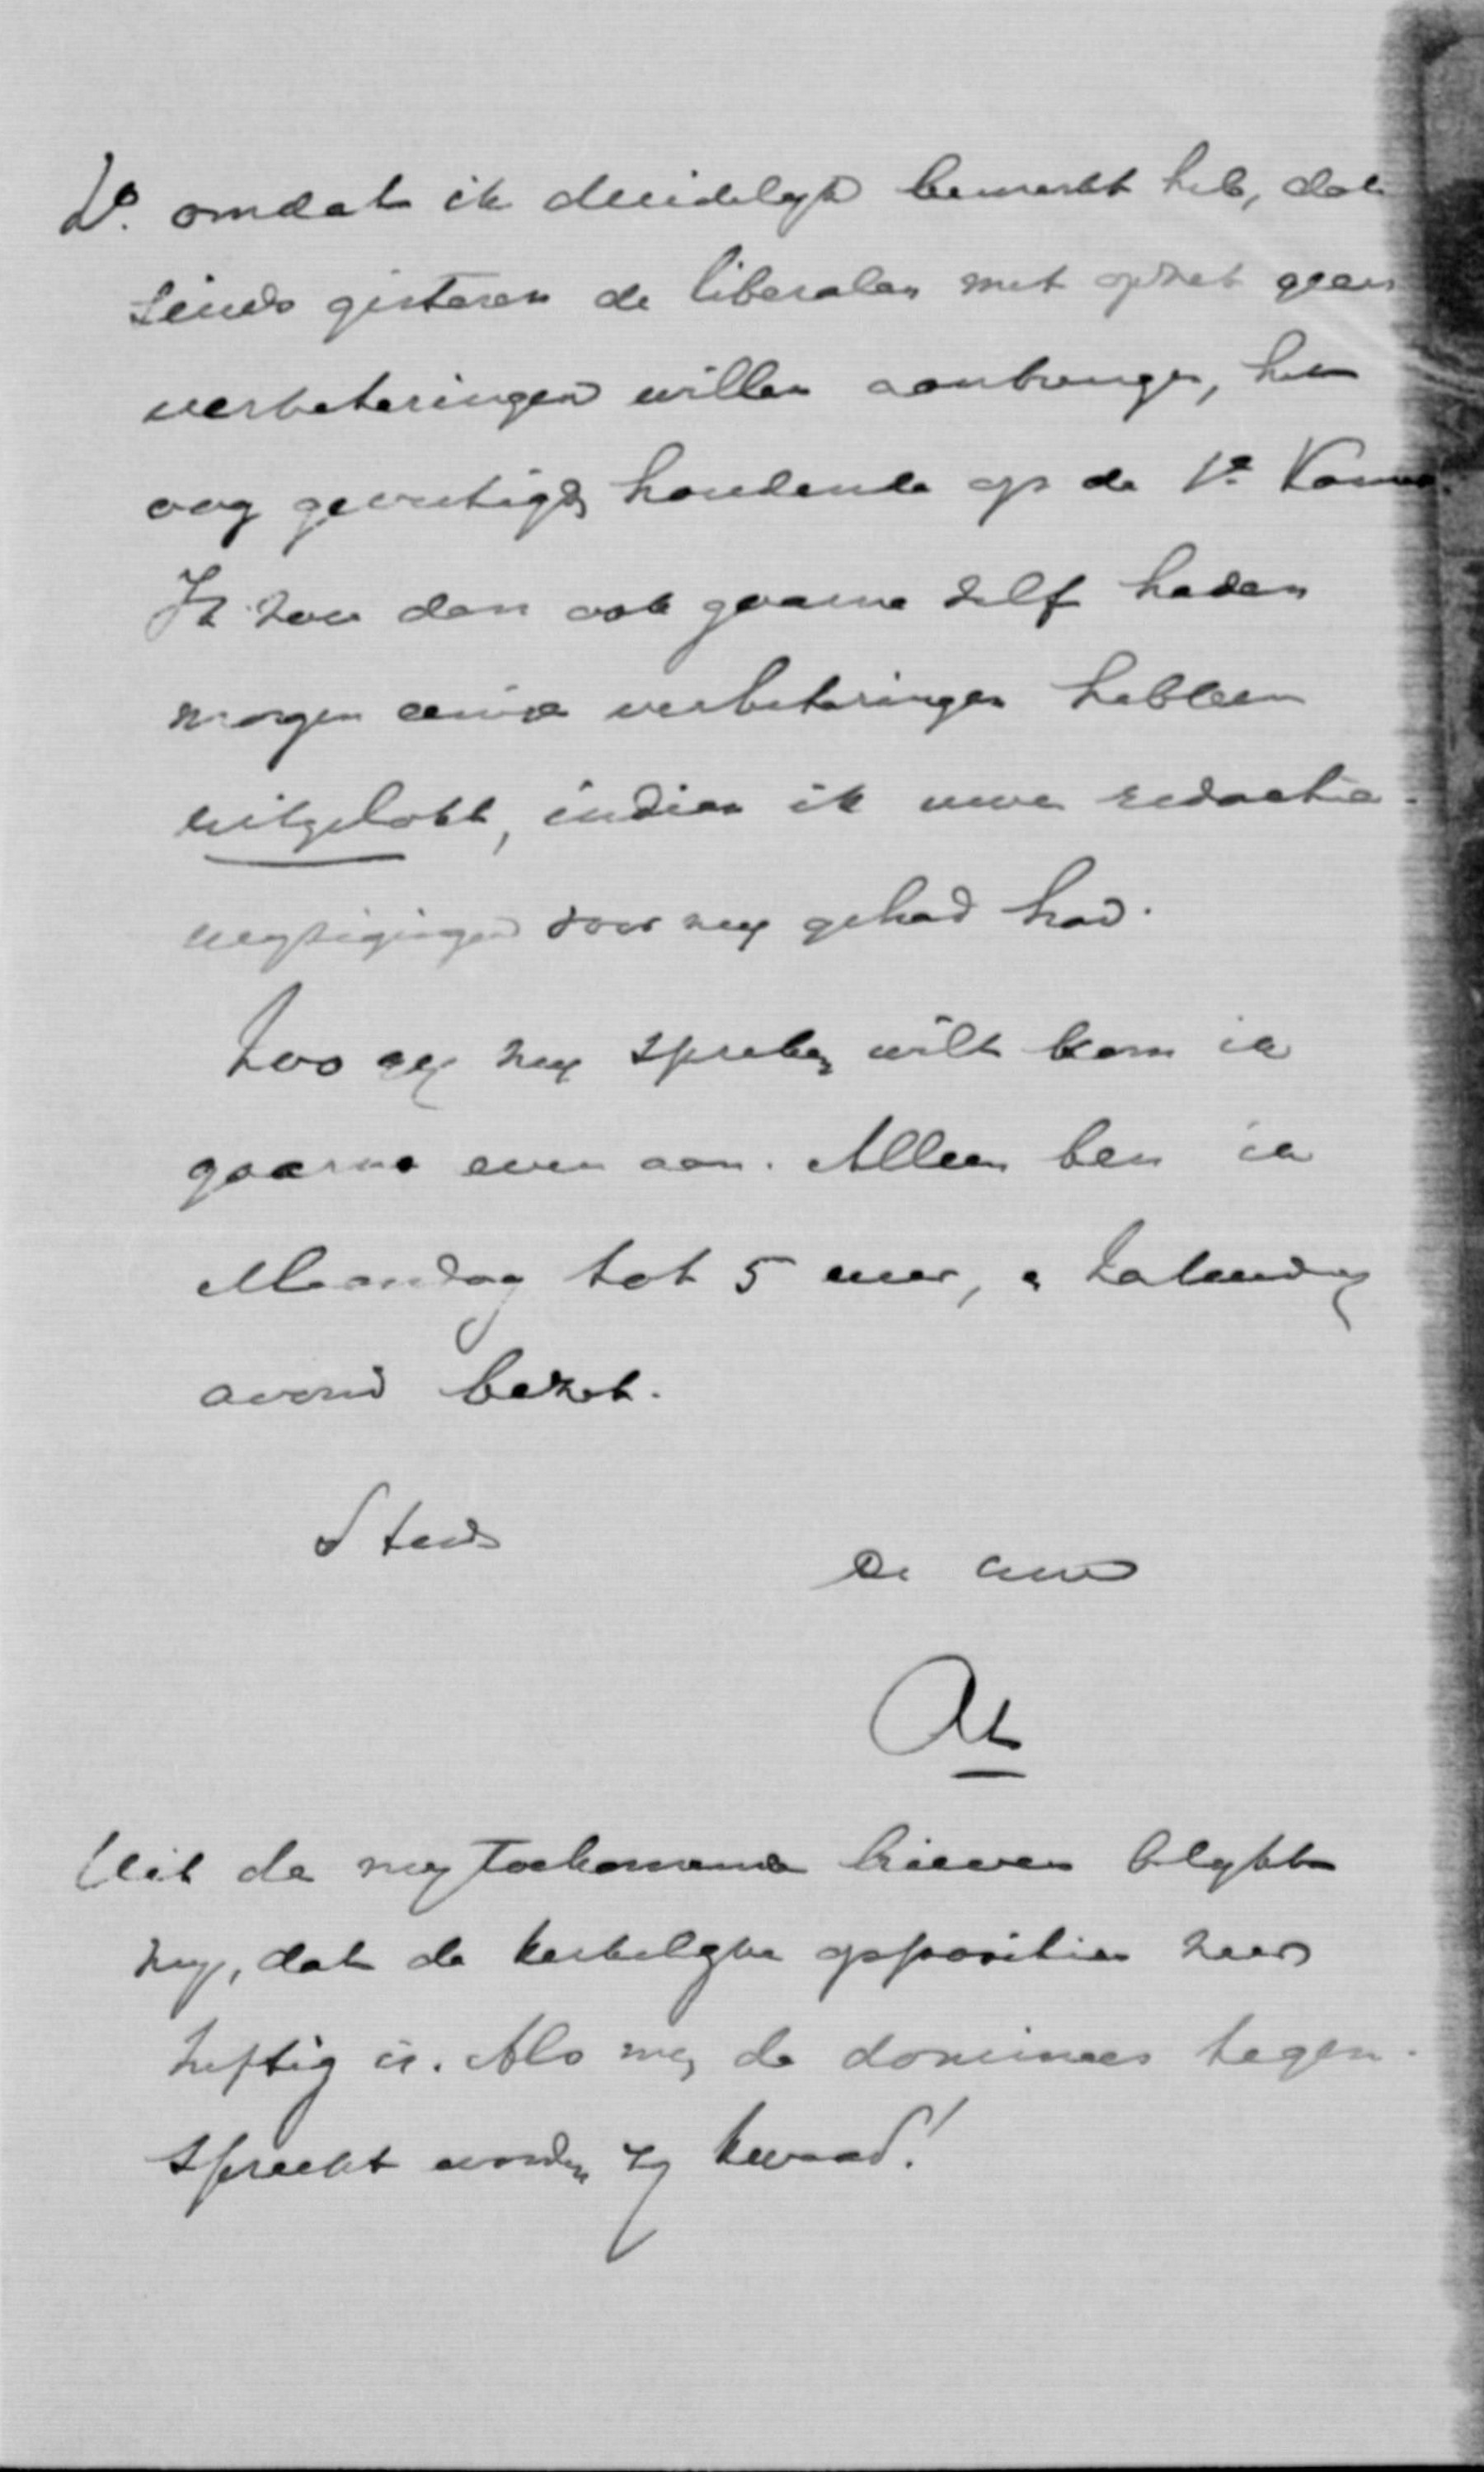 2º. omdat ik duidelijk bemerkt heb, dat
sinds gisteren de liberalen met opzet geen
verbeteringen willen aanbrengen, hun
oog gevestigd houdende op de 1e Kamer.
Ik zou dan ook gaarne zelf heden
morgen eenige verbeteringen hebben
uitgelokt, indien ik uwe redactie-
wijzigingen voor mij gehad had.
Zoo gij mij spreken wilt kom ik
gaarne even aan. Alleen ben ik
Maandag tot 5 uur, & Zaterdag
avond bezet.
Steeds
de uwe
Uit de mij toekomende brieven blijkt
mij, dat de kerkelijke oppositie zeer
heftig is. Als men de dominees tegen-
spreekt worden zij kwaad!